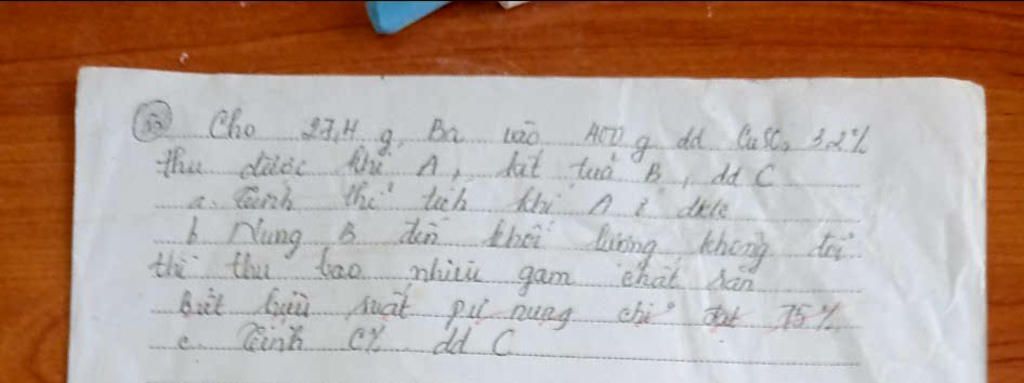 53 Cho 27,4 g Ba vào 400 g dd CuSO4 3,2%
thu được khí A, kết tủa B, dd C
a. Tính thể tích khí A ở đktc
b. Nung B đến khối lượng không đổi
thì thu bao nhiêu gam chất rắn
biết hiệu suất pứ nung chỉ đạt 75%
c. Tính C% dd C